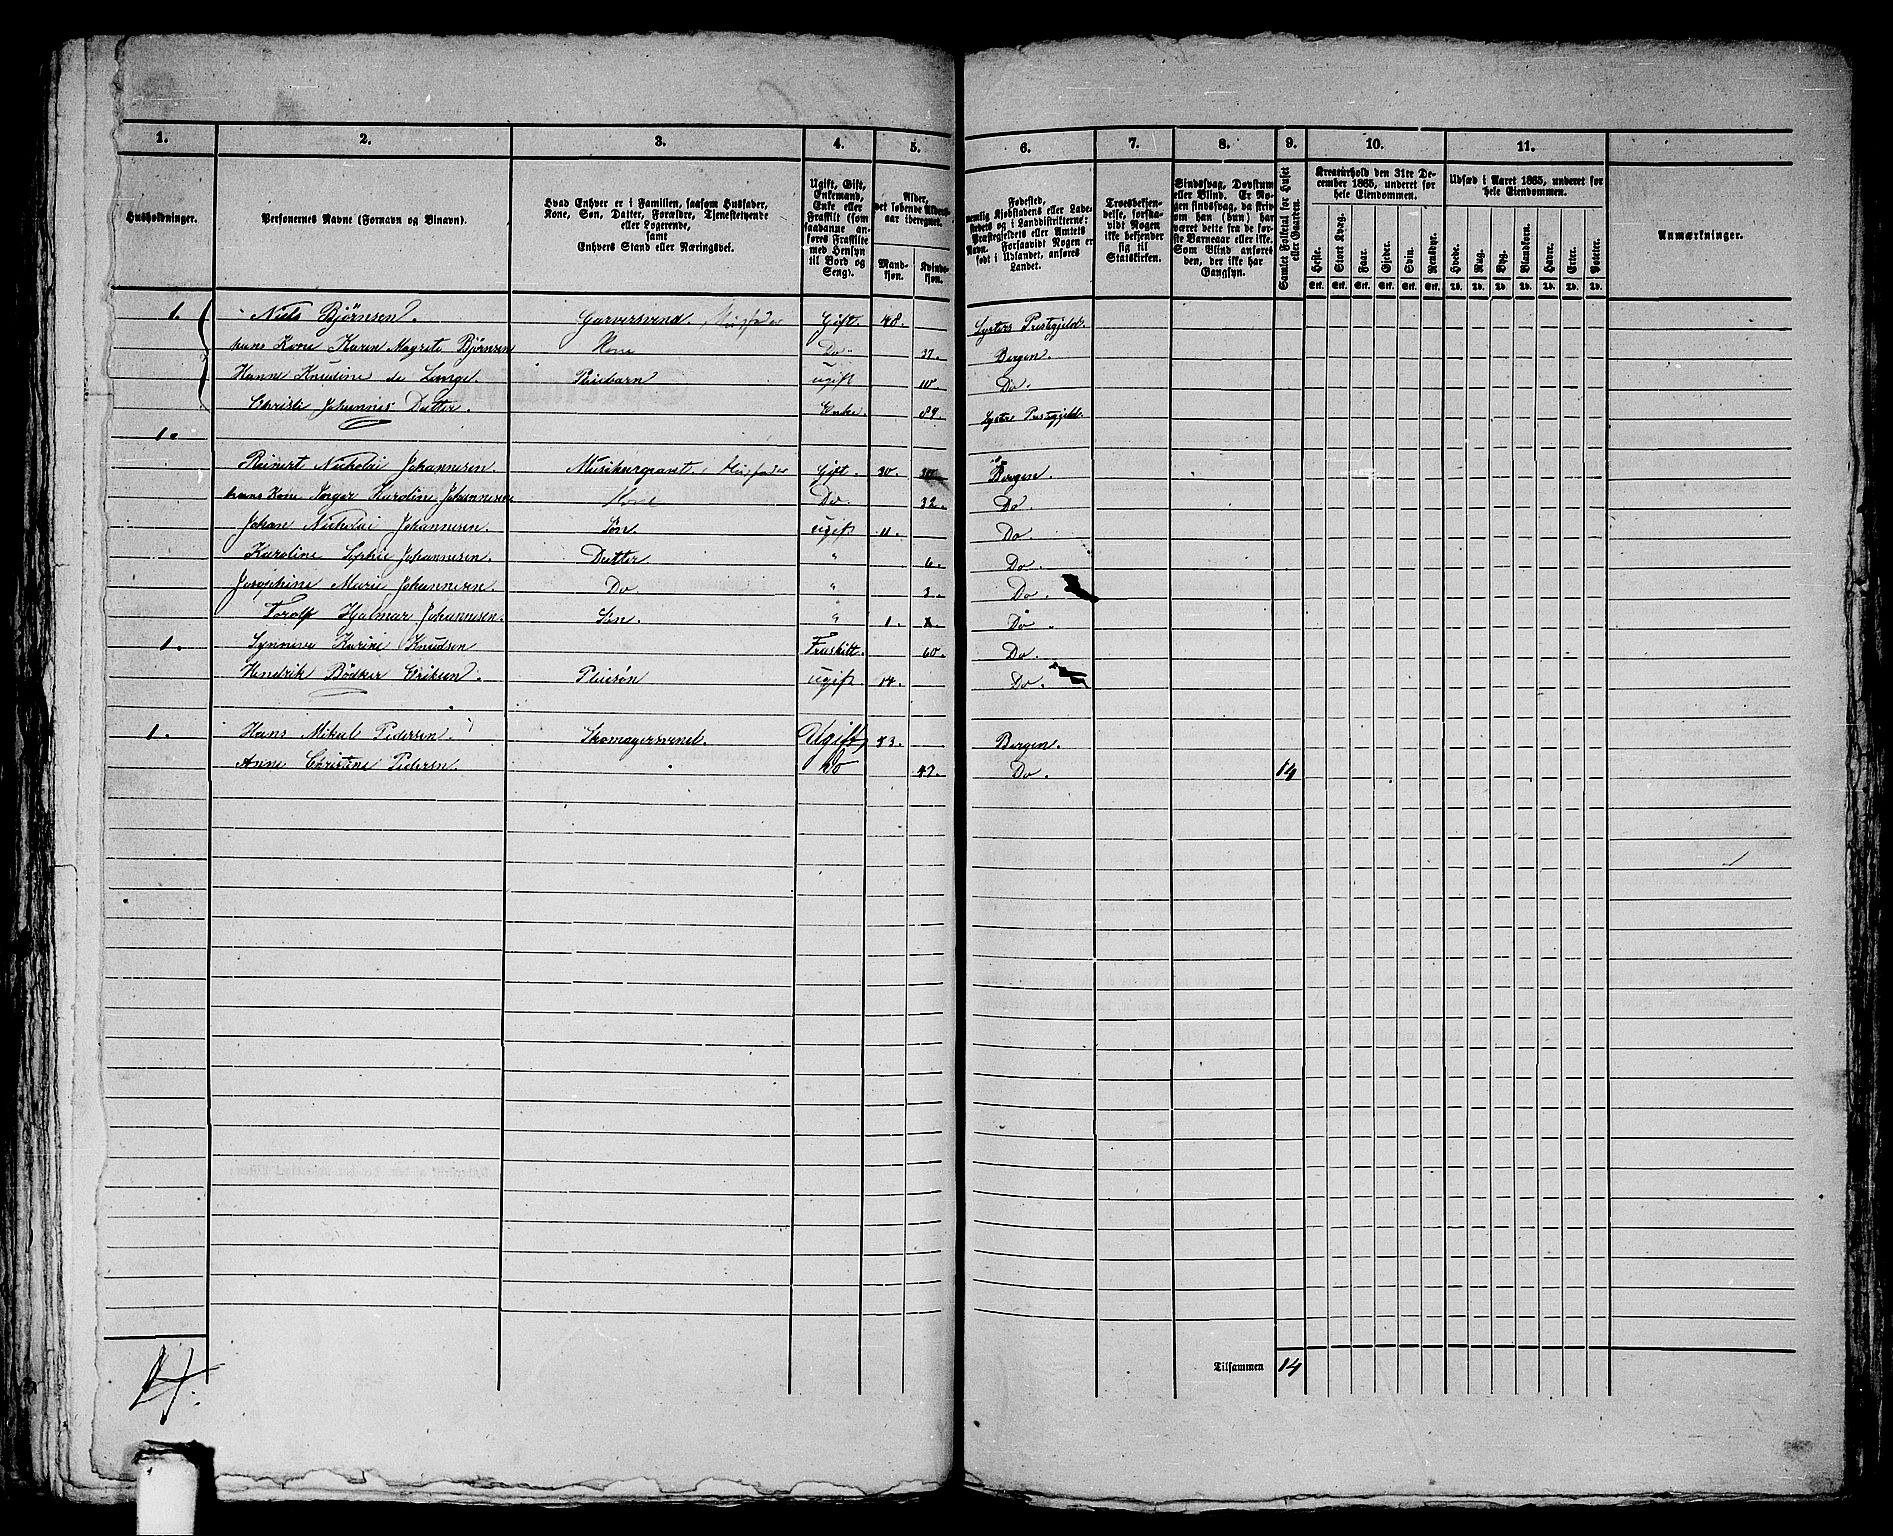 1. 2. 3. 4. 5. 6. 7. 8. 9. 10. 11.
Husholdninger.
Personernes Navne (Fornavn og Binavn).
Hvad Enhver er i Familien, saasom Husfader,
Kone, Søn, Datter, Forældre, Tjenestetyende
eller Logerende,
samt
Enhvers Stand eller Næringsvei.
Ugift, Gift,
Enkemand,
Enke eller
Fraskilt (som
saadanne an-
føres Fraskilte
med Hensyn
til Bord og
Seng).
Alder,
det løbende Alders-
aar iberegnet.
Mand-
kjøn.
Kvinde-
kjøn.
Fødested,
nemlig Kjøbstadens eller Lade-
stedets og i Landdistrikterne:
Præstegjeldets eller Amtets
Navn. Forsaavidt Nogen er
født i Udlandet, anføres
Landet.
Troesbekjen-
delse, forsaa-
vidt Nogen
ikke bekjender
sig til
Statskirken.
Sindssvag, Døvstum
eller Blind. Er No-
gen sindssvag, da skriv
om han (hun) har
været dette fra de før-
ste Barneaar eller ikke.
Som Blind anføres
den, der ikke har
Gangsyn.
Samlet Folketal for Huset
eller Gaarden.
Kreaturhold den 31te De-
cember 1865, underet for
hele Eiendommen.
Heste. Stort Kvæg. Faar. Gjeder. Sviin. Rensdyr.
Stk. Stk. Stk. Stk. Stk. Stk.
Udsæd i Aaret 1865, underet for
hele Eiendommen.
Hvede. Rug. Byg. Blandkorn. Havre. Erter. Poteter.
Td. Td. Td. Td. Td. Td. Td.
Anmærkninger.
1. Niels Bjørnsen. Garversvend. Husfader Gift. 48. Lysters Prestgjeld.
hans Kone Karen Magrete Bjørnsen Kone Do 37. Bergen.
Hanne Knudine de Lange. Pleiebarn ugift 10. Do.
Christi Johannes Datter. Enke. 89. Lysters Prestgjeld.
1.
Reinert Nickolai Johannesen Husfader Gift. 30. Bergen.
hans Kone Johannesen Kone Do 32. Do.
Johan Nickolai Johannesen. Søn. ugift 11. Do
Karoline Sophie Johannesen. Datter " 6. Do.
Josephine Marie Johannesen. Do " 3. Do.
Torolf Hjalmar Johannesen. Søn. " 1. Do.
1. Synneve Karine Knudsen Fraskilt. 60. Do.
Hendrik Bödker Eriksen. Pleiesøn ugift 14. Do.
1. Hans Mikal Pedersen. Skomagersvend. Ugift 43. Bergen.
Anne Christine Pedersen. do 47. Do. 14
Tilsammen 14
14.